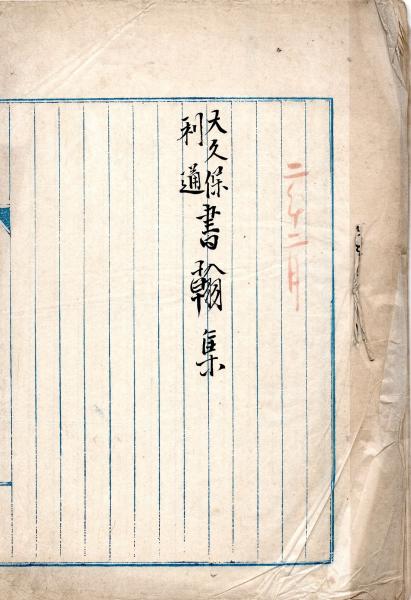 二年二月
大久保
利通
書翰集